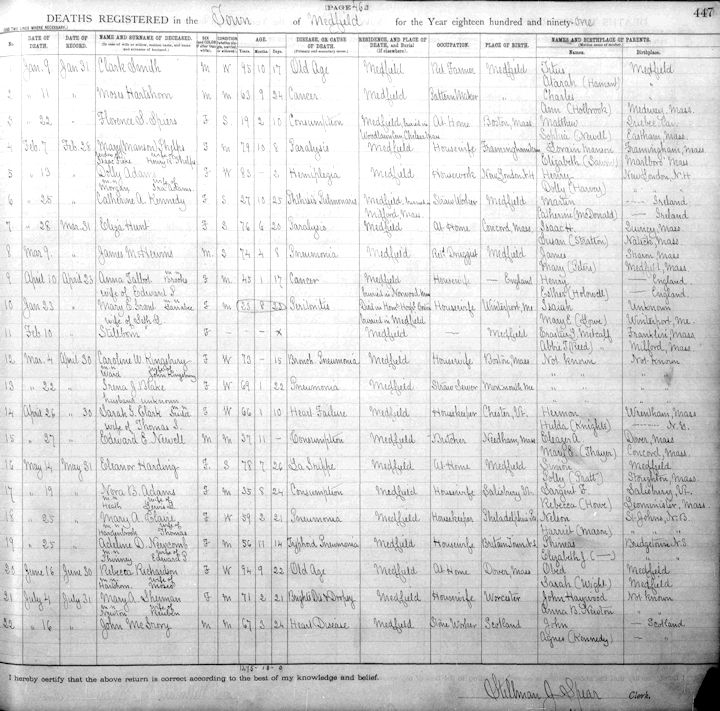 (PAGE 463)
447
DEATHS REGISTERED in the Town of Medfield for the Year eighteen hundred and ninety-one
(USE TWO LINES WHERE NECESSARY.)
No. DATE OF DEATH. DATE OF RECORD. NAME AND SURNAME OF DECEASED. CONDITION AGE. DISEASE, OR CAUSE OF DEATH. RESIDENCE, AND PLACE OF DEATH, and Burial (If elsewhere). OCCUPATION. PLACE OF BIRTH. NAMES AND BIRTHPLACE OF PARENTS.
Years Months Days Names. Birthplace.
Jan. 9 Jan 31 Clark Smith M W 10 17 Old Age Medfield Ret Farmer Medfield Titus Medfield
2 " 11 " Moses Hartshorn M M 63 9 24 Cancer Medfield Pattern Maker " Charles "
Ann (Holbrook) Medway, Mass.
3 " 22 " Florence S. F S 19 2 10 Consumption Medfield, buried in At Home Boston, Mass Matthew
Woodlawn Cem Chelsea Mass Sophia (Newell) Eastham, Mass.
4 Feb. 7 Feb 28 Mary Phelps F M 79 10 8 Paralysis Medfield Housewife Framingham Manson Framingham, Mass
Elizabeth Marlboro Mass
5 " 13 " Dolly Adams F W 93 - 2 Hemiplegia Medfield Housework New London N.H Henry New London, N.H
Morgan wife of Adams Dolly (Harvey) "
6 " 25 " Catherine A. Kennedy F S 27 10 25 Phthisis Pulmonaris Medfield, buried in Straw Worker Medfield Martin Ireland
Milford Mass. Catherine (McDonald) Ireland
7 " 28 Mar. 31 Eliza Hunt F S 76 6 20 Paralysis Medfield At Home Concord Mass Isaac H Quincy Mass
Susan (Stratton) Natick Mass
8 Mar 9. " James M. M S 74 4 8 Pneumonia Medfield Ret. Druggist Medfield James Sharon Mass
Mary (Peters) Medfield, Mass
9 April 10 April 23 Anna Talbot Brooks F M 43 1 17 Cancer Medfield Housewife England Henry England
wife of Edward buried in Norwood Mass Esther England
10 Jan 23 " Mary E. F M 23 8 23 Peritonitis Died in Boston Housewife Winterport, Me. Isaiah Unknown
wife of Seth buried in Medfield Mary E (Lowe) Winterport, Me.
11 Feb 10 " Stillborn F - - x Medfield - Medfield Erastus Metcalf Franklin, Mass
Abbie (Reed) Milford, Mass.
12 Mar. 4 April 30 Caroline W. Kingsbury F W 73 - 15 Bronch. Pneumonia Medfield Housewife Boston, Mass Not known Not known
Ward John Kingsbury " "
13 " 22 " Irena J. Blake F W 69 1 22 Pneumonia Medfield Straw Sewer Monmouth Me " "
husband unknown " "
14 April 26 " 30 Sarah S. Clark F W 66 1 10 Heart Failure Medfield Housekeeper Chester, Vt. Hermon Wrentham, Mass
wife of Thomas Hulda (Knights)
15 " 27 " Edward E. Newell M M 37 11 - Consumption Medfield Butcher Needham, Mass Eleazer A. Dover, Mass
Mary E. (Thayer) Concord, Mass.
16 May 14 May 31 Eleanor Harding F S 78 7 26 La Grippe Medfield At Home Medfield Simon Medfield
Polly (Pratt) Stoughton, Mass.
17 " 19 " Nora B. Adams F M 35 8 24 Consumption Medfield Housewife Salisbury Vt. Sargent F Salisbury, Vt.
Heath wife of Lewis Rebecca (Howe) Leominster, Mass
18 " 25 " Mary A. F W 59 2 21 Pneumonia Medfield Housekeeper Philadelphia Pa Nelson St Johns, N.B
wife of Thomas Harriet (Mason) "
19 " 25 " Adeline D. Newcomb F M 56 11 14 Typhoid Pneumonia Medfield Housewife Thomas N.S
wife of Edward Elizabeth J. "
20 June 16 June 30 Rebecca Richardson F W 94 9 22 Old Age Medfield At Home Dover, Mass Obed Medfield
Hartshorn wife of Moses Sarah (Wight) Medfield
21 July 4 July 31 Mary A. Sherman F M 71 2 21 Brights Dis & Dropsy Medfield Housewife Worcester John Haywood Not Known
Newton wife of Reuben Anna B. Newton "
22 " 16 " John M M 67 3 24 Heart Disease Medfield Stone Worker Scotland John Scotland
Agnes (Kennedy) "
I hereby certify that the above return is correct according to the best of my knowledge and belief.
Stillman J. Spear Clerk.